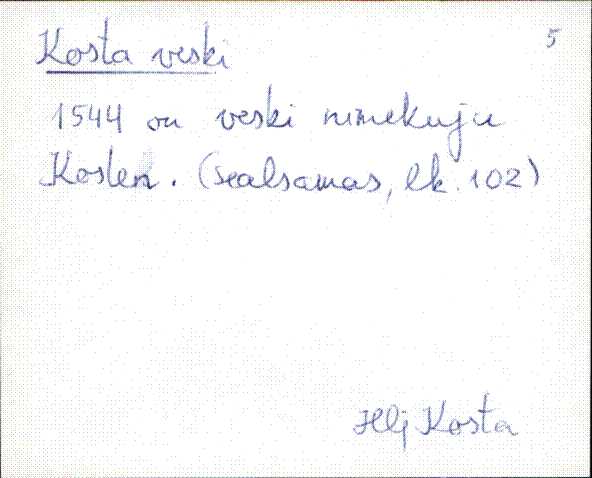 Kosta veski 5
1544 on veski nimekuju
Kosten. (sealsamas, lk. 102)
Hlj Kosta